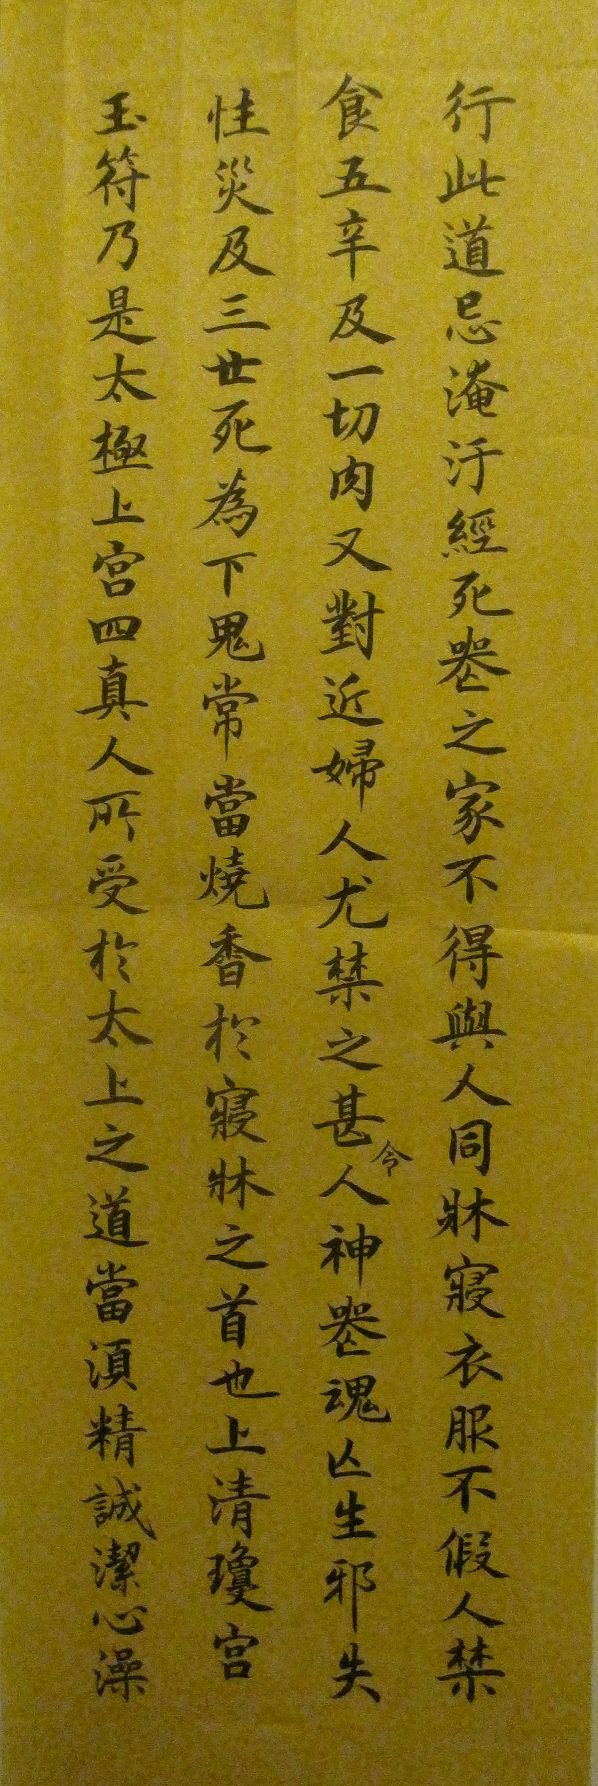 行此道忌淹汙經死丧之家不得與人同牀寢衣服不假人禁
食五辛及一切肉又對近婦人尤禁之甚令人神丧魂亡生邪失
性災及三世死為下鬼常當燒香於寢牀之首也上清瓊宮
玉符乃是太極上宮四真人所受於太上之道當須精誠潔心澡